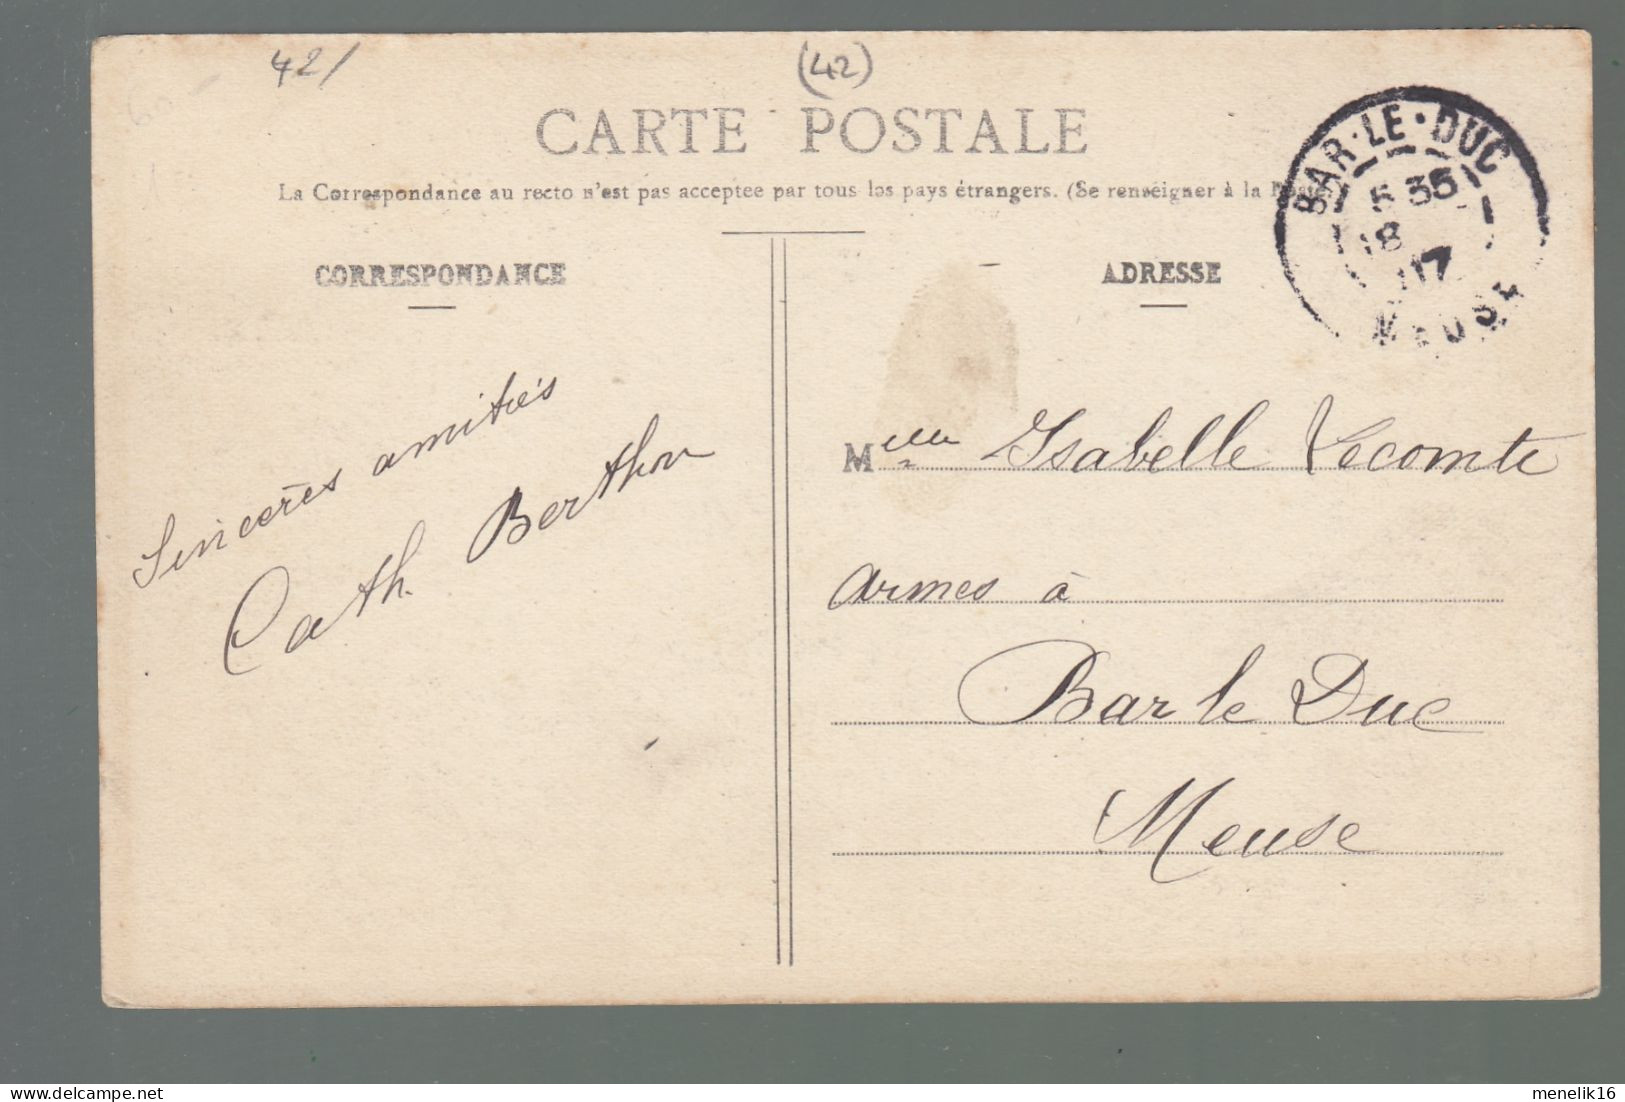 42/
(42)
CARTE POSTALE
La Correspondance au recto n'est pas acceptee par tous les pays étrangers. (Se renseigner à la Poste)
BAR·LE·DUC
5 35
18
07
MEUSE
CORRESPONDANCE
ADRESSE
Sincères amitiés
Cath. Berthon
Melle Isabelle Lecomte
armes à
Bar le Duc
Meuse
menelik16